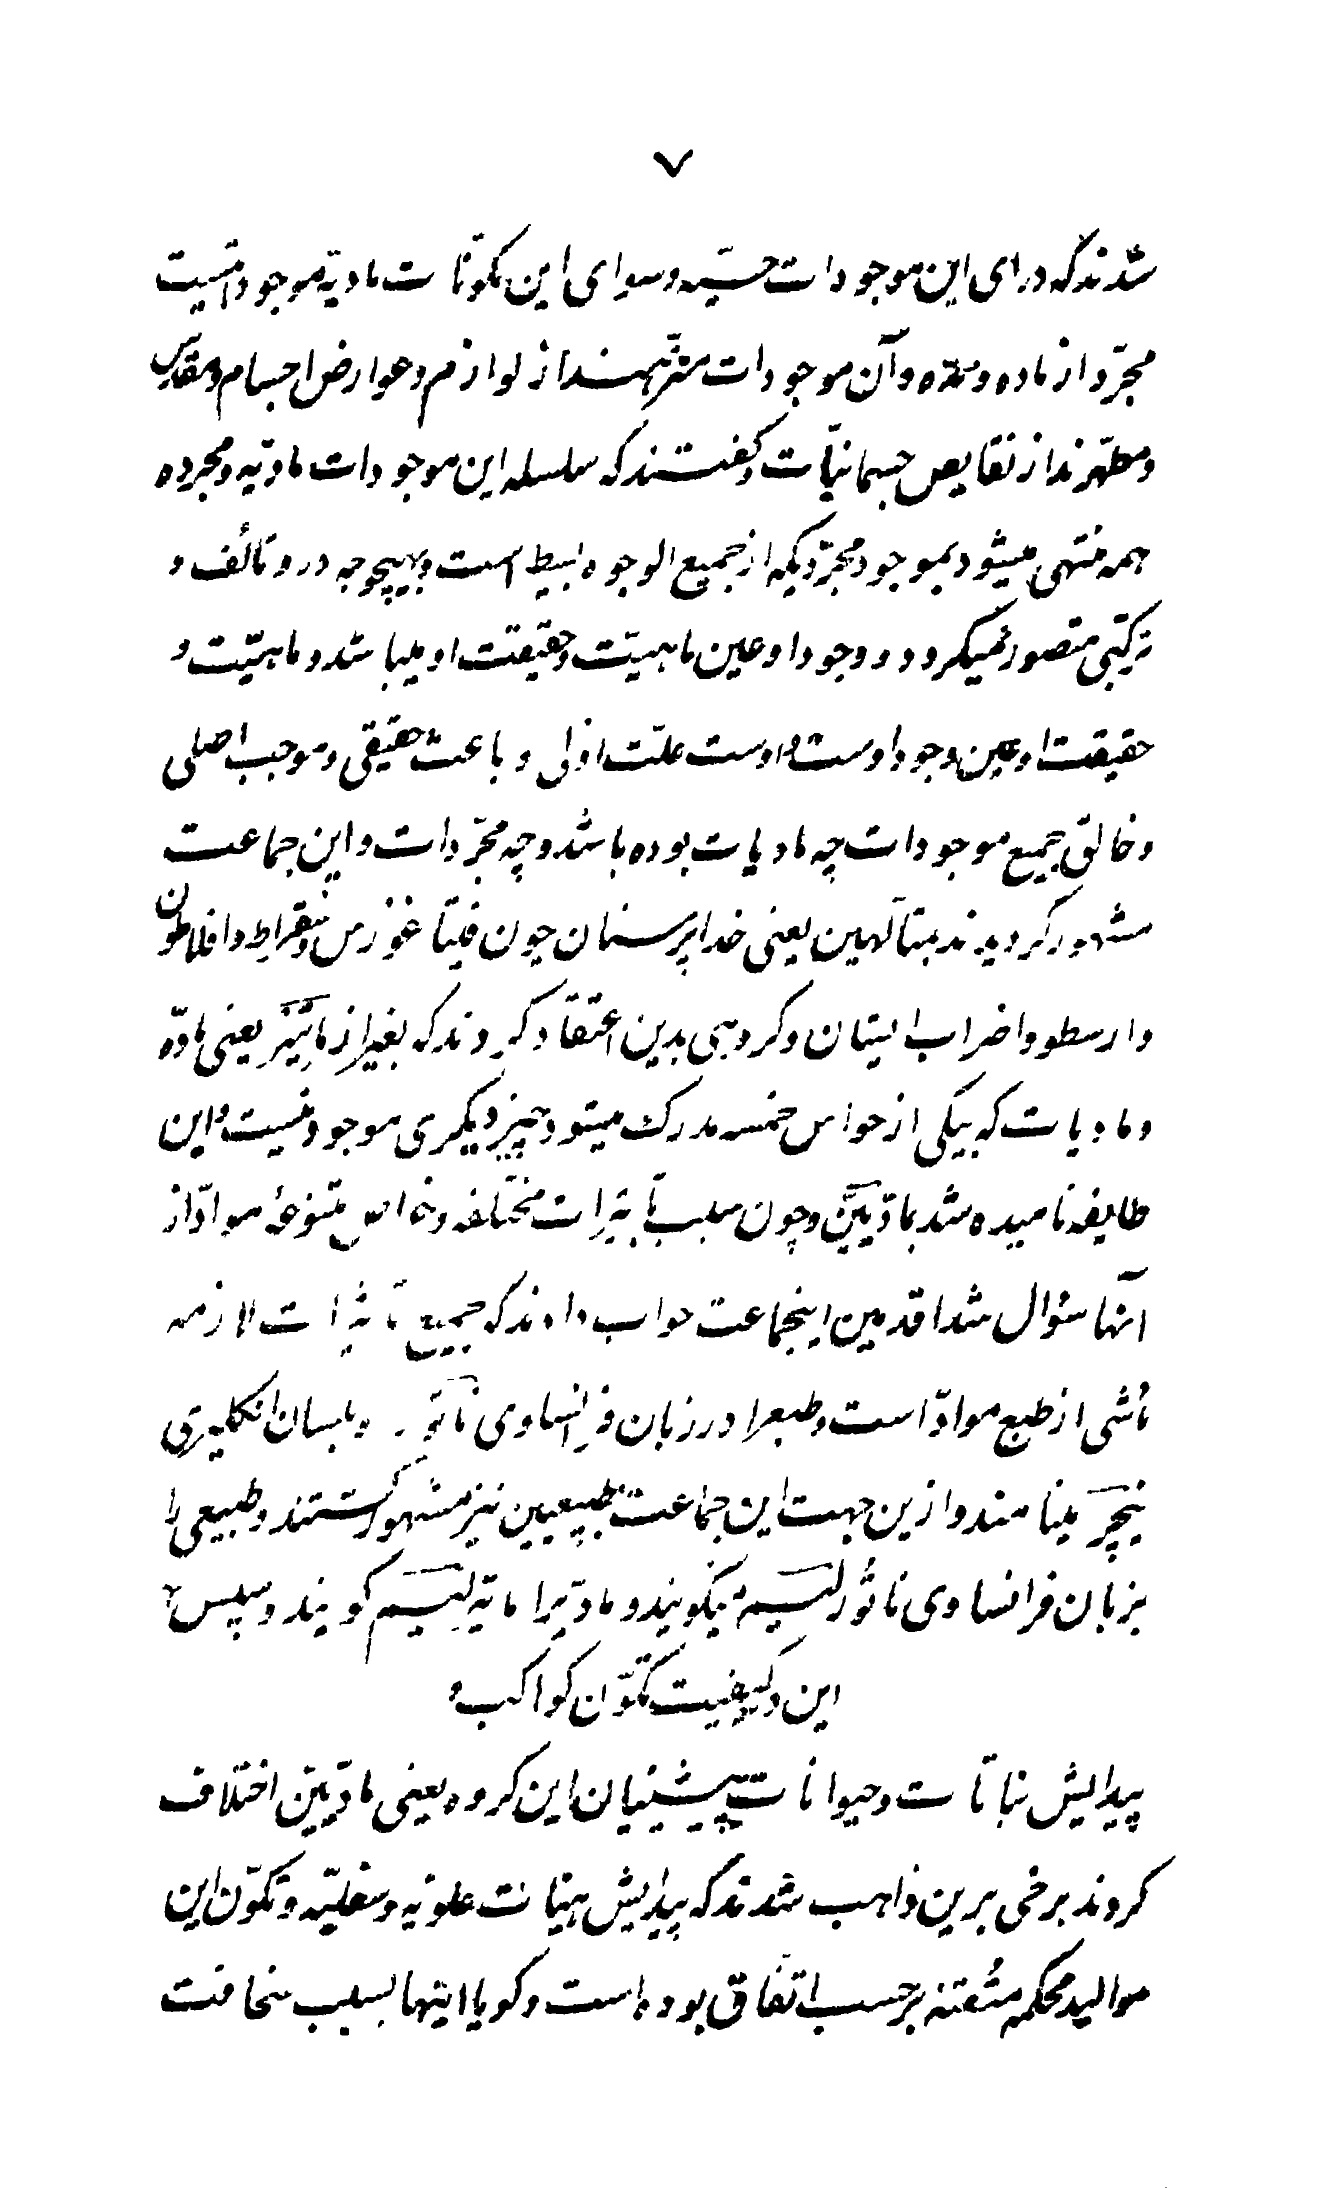 ۷
شدند که ورای این موجودات حسیّه و سوای این مکوّنات مادیّه موجوداتیست
مجرّد از ماده و مدّه و آن موجودات منزّهند از لوازم و عوارض اجسام و مقادیر
و مطهّرند از نقایص جسمانیّات و گفتند که سلسله این موجودات مادیّه و مجرده
همه منتهی میشود بموجود مجرّدیکه از جمیع الوجوه بسیط است و بهیچوجه درو تألف و
ترکیبی متصور نمیگردد و وجود او عین ماهیّت و حقیقت او میباشد و ماهیّت و
حقیقت او عین وجود اوست و اوست علّت اوّلی و باعث حقیقی و موجب اصلی
و خالق جمیع موجودات چه مادیات بوده باشد و چه مجرّدات و این جماعت
مشهور گردیدند بمتألهین یعنی خدا پرستان چون فیثاغورس و سقراط و افلاطون
و ارسطو و اضراب ایشان و گروهی بدین اعتقاد کردند که بغیر از ماتیَر یعنی مادّه
و مادیات که بیکی از حواس خمسه مدرک میشود چیز دیگری موجود نیست و این
طایفه نامیده شد بمادّیّین و چون سبب تأثیرات مختلفه و خواص متنوعهٔ موادّ از
آنها سؤال شد اقدمین اینجماعت جواب دادند که جمیع تأثیرات لازمه
ناشی از طبع موادّ است و طبع را در زبان فرانساوی ناتور و بلسان انگلیزی
نیچر مینامند و ازین جهت این جماعت بطبیعیین نیز مشهور گشتند و طبیعی را
بزبان فرانساوی ناتورلیسم میگویند و مادّی را ماتریلیسم گویند و سپس
این و کیفیت تکوّن کواکب و
پیدایش نباتات و حیوانات پیشینیان این گروه یعنی مادّیّین اختلاف
کردند برخی برین ذاهب شدند که پیدایش هیئات علویّه و سفلیّه و تکوّن این
موالید محکمه متقنه برحسب اتفاق بوده است و گویا اینها بسبب سخافت